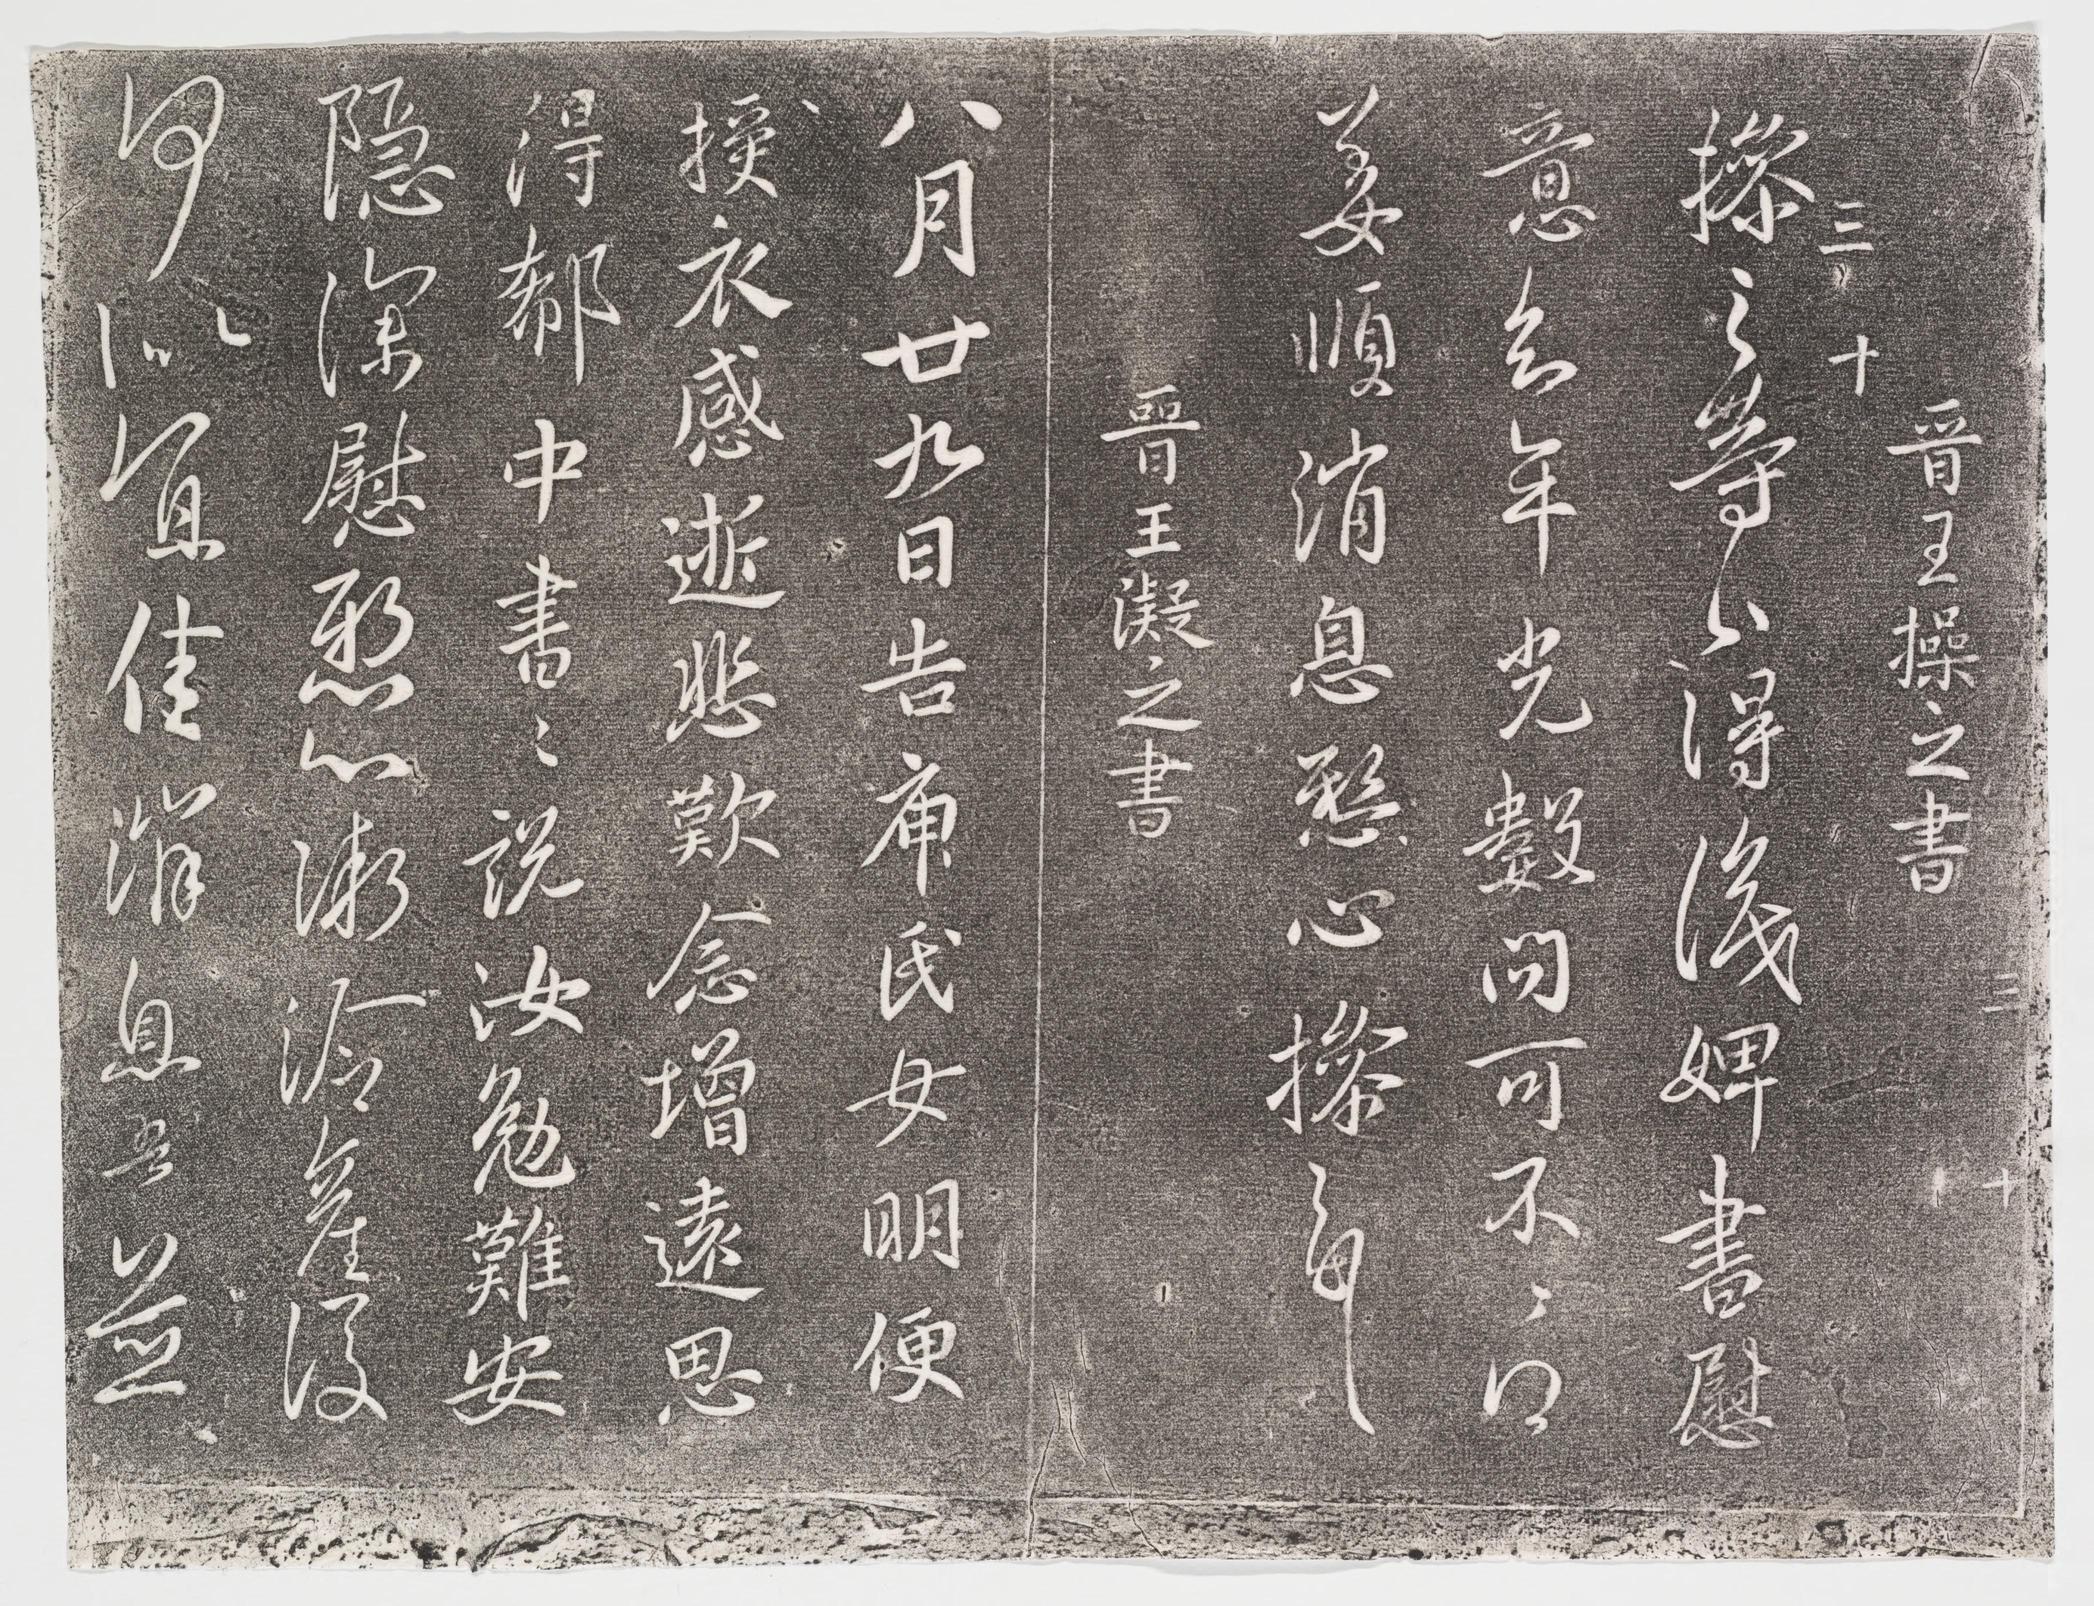 三 十
晉王操之書
三 十
操之等得識婢書慰
意去年光數問可不〻
姜順消息懸心操
晉王凝之書
八月廿九日告庾氏女明便
授衣感逝悲歎念增遠思
得郗中書〻說汝勉難安
隱深慰懸心漸冷產後
何以宜佳消息吾並